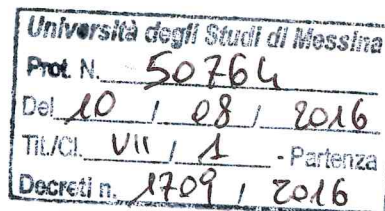 Università degli Studi di Messina
Prot. N. 50764
Del 10 / 08 / 2016
Tit./Cl. VII / 1 - Partenza
Decreti n. 1709 / 2016